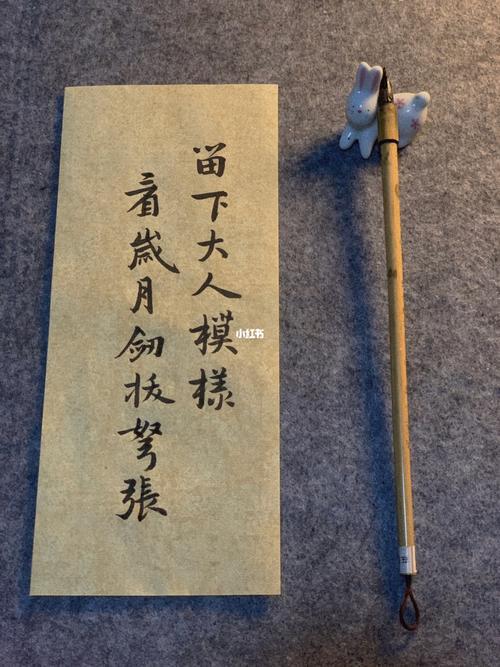 留下大人模樣
看歲月劍拔弩張
小红书